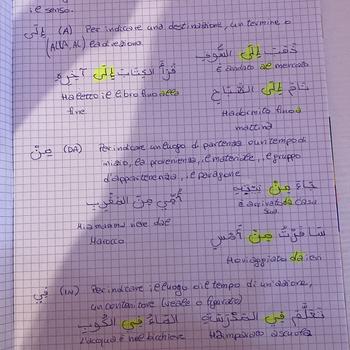 ie senso.
إِلَى (A) Per indicare una destinazione, un termine o
(ALLA, AL) la direzione.
ذَهَبَ إِلَى السُّوقِ
È andato al mercato
قَرَأَ الكِتَابَ إِلَى آخِرِهِ
Ha letto il libro fino alla
fine
نَامَ إِلَى الصَّبَاحِ
Ha dormito fino a
mattina
مِنْ (DA) Per indicare un luogo di partenza o un tempo di
inizio, la provenienza, il materiale, il gruppo
d'appartenenza, il paragone
جَاءَ مِنْ بَيْتِهِ
È arrivato da casa
sua
أُمِّي مِنَ المَغْرِبِ
Mia mamma viene dal
Marocco
سَافَرْتُ مِنْ أَمْسِ
Ho viaggiato da ieri
فِي (IN) Per indicare il luogo o il tempo di un'azione,
un contenitore (reale o figurato)
تَعَلَّمَ فِي المَدْرَسَةِ
Ha imparato a scuola
المَاءُ فِي الكُوبِ
L'acqua è nel bicchiere